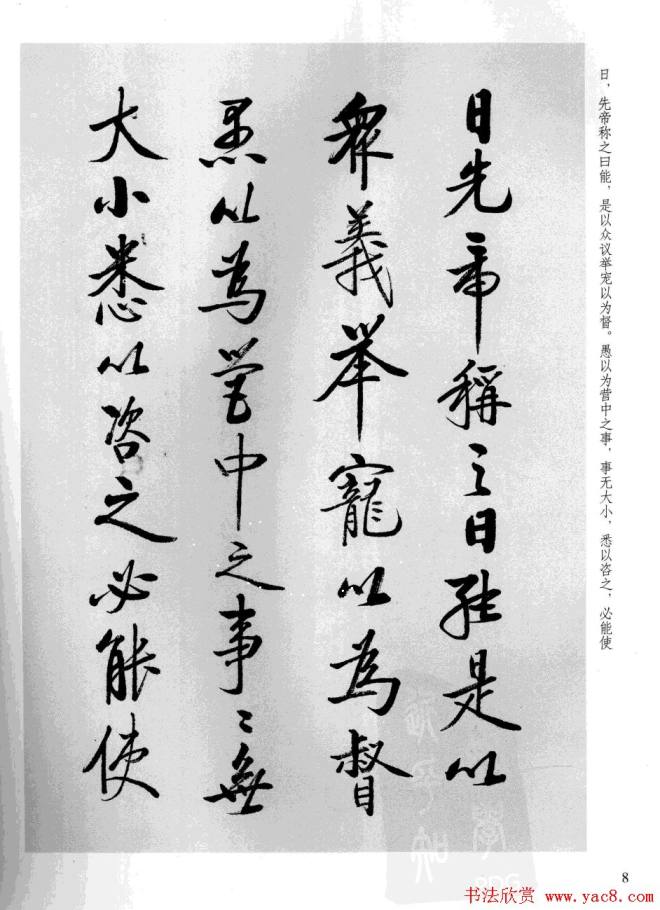 日先帝稱之曰能是以
衆義舉寵以為督
愚以為營中之事〻無
大小悉以咨之必能使
日，先帝称之曰能，是以众议举宠以为督。愚以为营中之事，事无大小，悉以咨之，必能使
8
书法欣赏 www.yac8.com